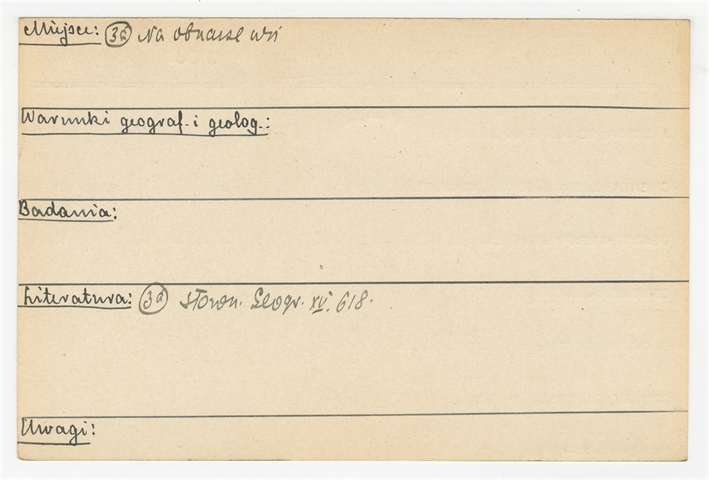 Miejsce: 3a Na obszarze wsi
Warunki geograf. i geolog.:
Badania:
Literatura: 3a Słown. Geogr. XV. 618.
Uwagi: